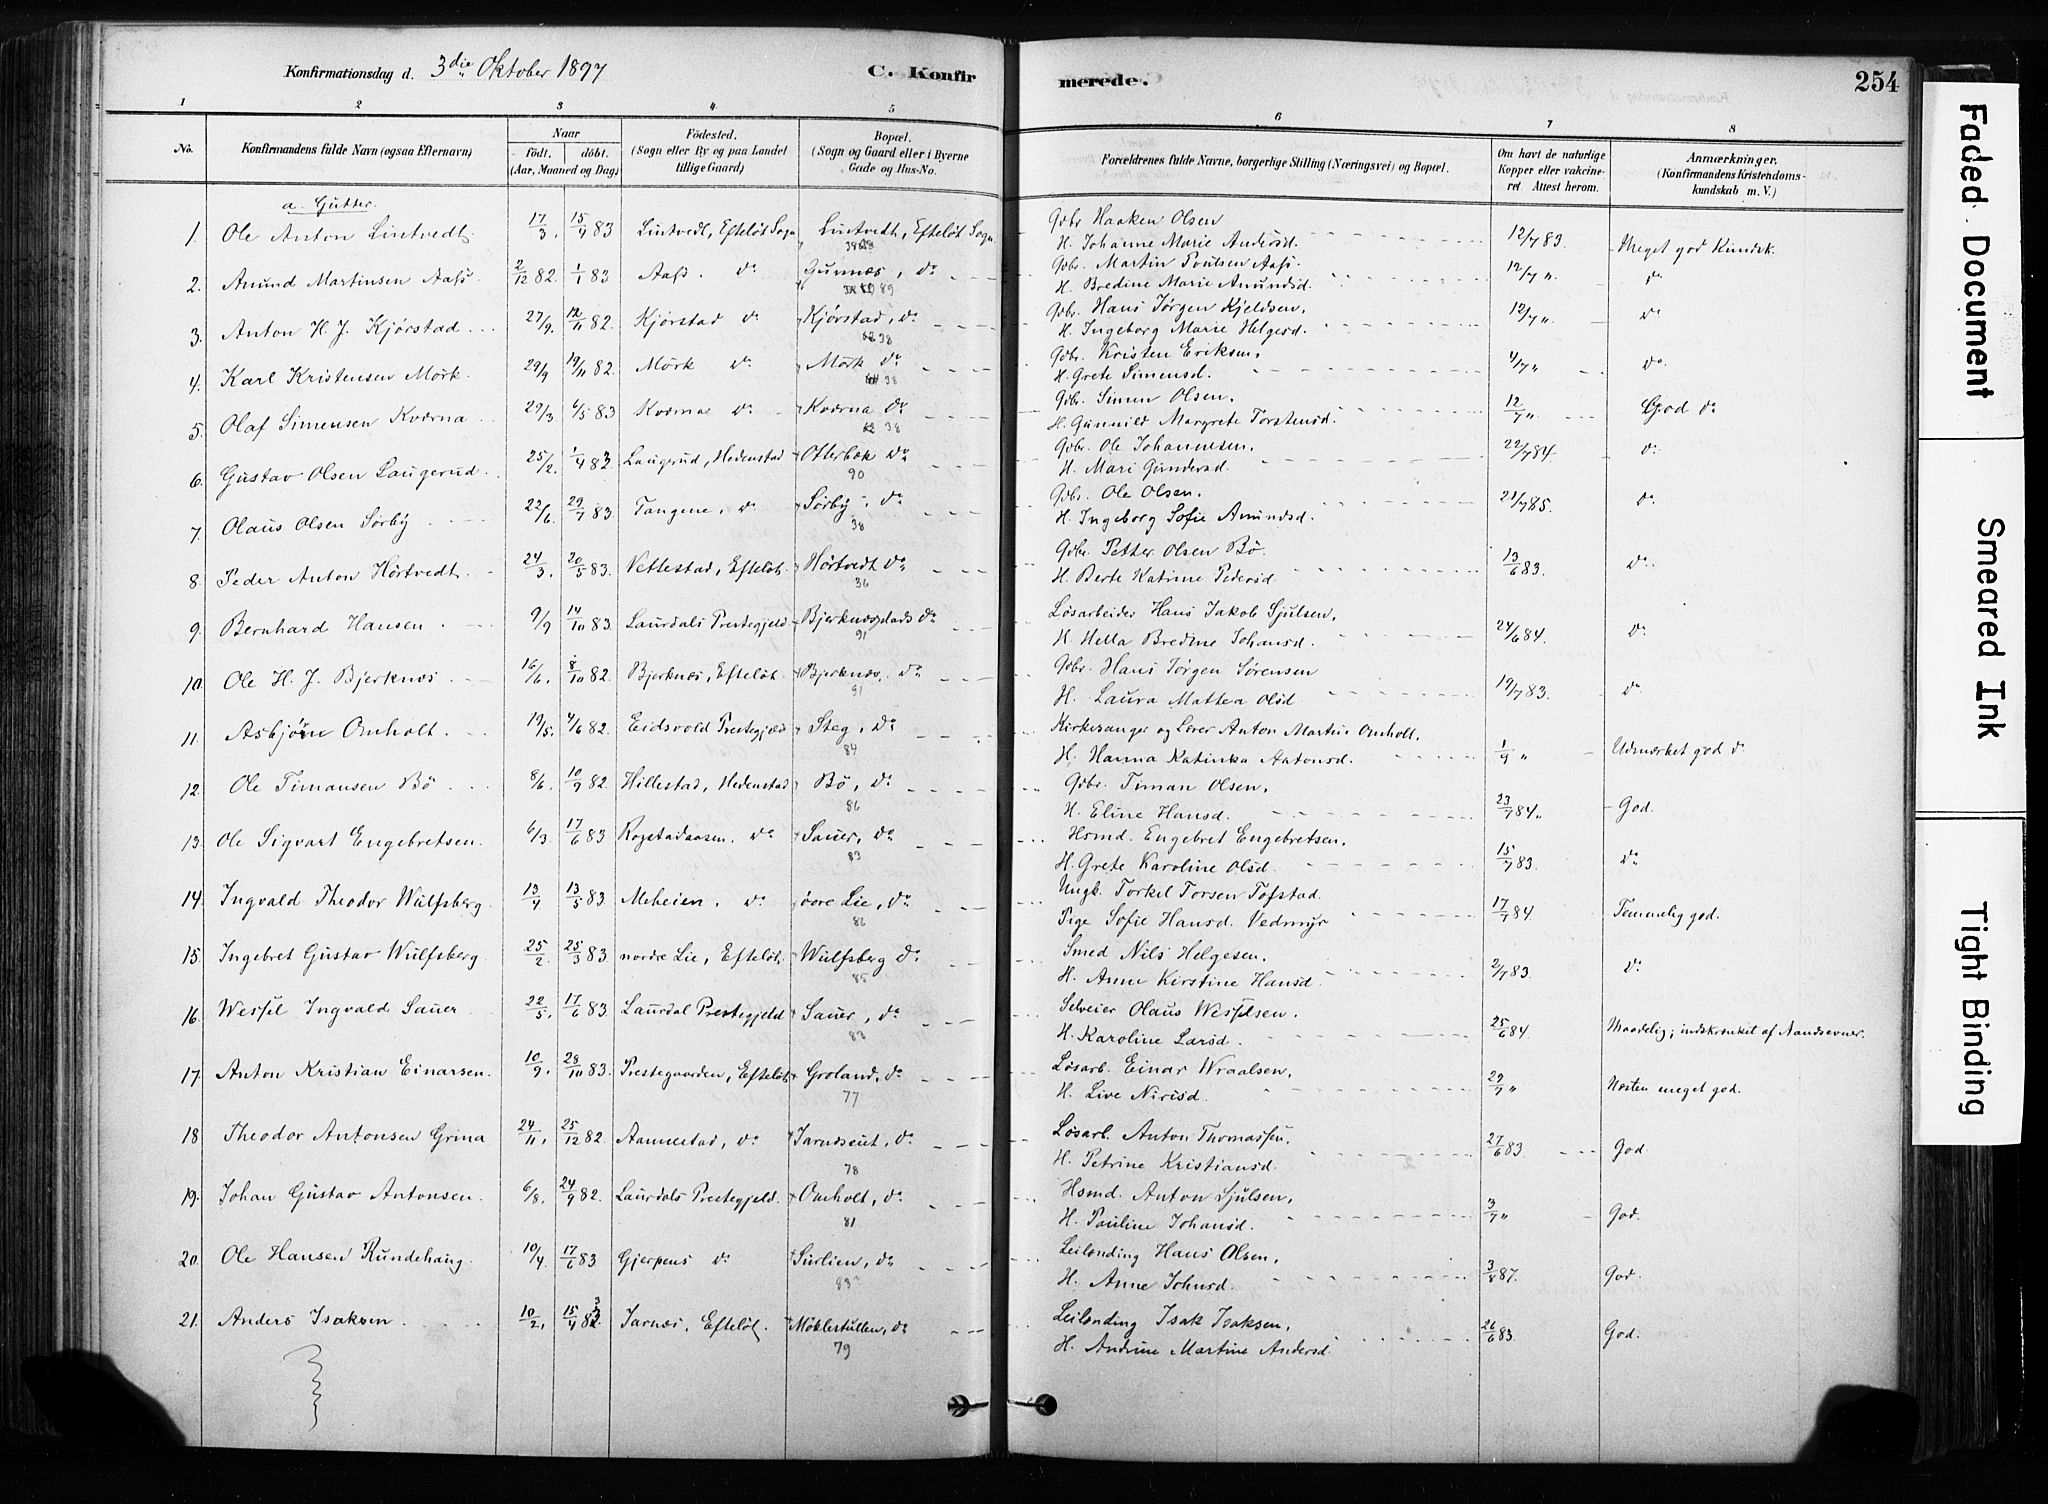 Konfirmationsdag d. 3die Oktober 1897 C. Konfirmerede. 254
1 2 3 4 5 6 7 8
No. Konfirmandens fulde Navn (ogsaa Efternavn) Naar födt. döbt. (Aar, Maaned og Dag) Födested. (Sogn eller By og paa Landet tillige Gaard) Bopæl. (Sogn og Gaard eller i Byerne Gade og Hus-No. Forældrenes fulde Navne, borgerlige Stilling (Næringsvei) og Bopæl. Om havt de naturlige Kopper eller vakcineret. Attest herom. Anmærkninger. (Konfirmandens Kristendomskundskab m. V.)
a. Gutter.
1. Ole Anton Lintvedt 17/3. 15/4 83 Lintvedt, Efteløt Sogn Lintvedt, Efteløt Sogn Gdbr Haaken Olsen
H. Johanne Marie Andersd. 12/7 83. Meget god Kundsk.
2. Amund Martinsen Aass 2/12 82. 1/1 83 Aass. do Gunnæs, do 89 Gdbr. Martin Poulsen Aass.
H. Bredine Marie Amundsd. 12/7 " do
3. Anton H. J. Kjørstad 27/9. 12/11 82. Kjørstad do Kjørstad, do 38 Gdbr. Hans Jørgen Kjeldsen,
H. Ingeborg Marie Helgesd. 12/7 " do
4. Karl Kristensen Mørk. 29/9 19/11 82. Mørk do Mørk do 38 Gdbr. Kristen Eriksen,
H. Grete Simensd. 4/7 " do
5. Olaf Simensen Kværna 29/3 6/5 83 Kværna do Kværna do 38 Gdbr. Simen Olsen,
H. Gunnild Margrete Torstensd. 12/7 " God do
6. Gustav Olsen Laugerud 25/2. 1/4 83. Laugerud, Hedenstad Otterbæk do 90 Gdbr. Ole Johannesen,
H. Mari Gundersd 22/7 84. do
7. Olaus Olsen Sørby 22/6. 29/7 83. Tangene, do Sørby, do 38 Gdbr. Ole Olsen.
H. Ingeborg Sofie Amundsd. 21/7 85. do
8. Peder Anton Hørtvedt 24/3. 20/5 83. Vettestad, Efteløt Hørtvedt do 36 Gdbr. Petter Olsen Bö.
H. Berte Katrine Pedersd. 13/6 83. do
9. Bernhard Hansen 9/9 14/10 83. Laurdals Prestegjeld Bjerknæsplads do 91 Løsarbeider Hans Jakob Sjulsen,
H. Hella Bredine Johansd. 24/6 84. do
10. Ole H. J. Bjerknæs 16/6. 8/10 82. Bjerknæs, Efteløt. Bjerknæs, do 91 Gdbr. Hans Jørgen Sørensen
H. Laura Mathea Olsd 19/7 83. do
11. Asbjørn Omholt. 19/5. 4/6 82. Eidsvold Prestegjæld Steg, do 84 Kirkesanger og Lærer Anton Martin Omholt.
H. Hanna Katinka Antonsd. 1/9 " Udmærket god do
12. Ole Timansen Bö 8/6. 10/9 82. Hillestad, Hedenstad Bö, do 86 Gdbr. Timan Olsen,
H. Eline Hansd. 23/7 84. God.
13. Ole Sigvart Engebretsen. 6/3. 17/6 83 Rogstadaasen, do Sauer, do 83 Hsmd. Engebret Engebretsen.
H. Grete Karoline Olsd. 15/7 83. do
14. Ingvald Theodor Wulfsberg. 13/4 13/5 83 Meheien, do øvre Lie, do 86 Ungk. Torkel Torsen Tofstad.
Pige Sofie Hansd. Vedmyr 17/7 84. Temmelig god.
15. Ingebret Gustav Wulfsberg 25/2. 25/3 83 nordre Lie, Efteløt. Wulfsberg do 85 Smed Nils Helgesen.
H. Anne Kirstine Hansd. 2/7 83. do
16. Wessel Ingvald Sauer 22/5. 17/6 83 Laurdal Prestegjeld Sauer, do 83 Selveier Olaus Wesselsen.
H. Karoline Larsd. 25/6 84. Maadelig; indskrænket af Aandsevner.
17. Anton Kristian Einarsen. 10/9. 28/10 83. Prestegaarden, Efteløt Groland, do 77 Løsarb. Einar Wraalsen,
H. Live Nirisd. 29/7 " Næsten meget god.
18 Theodor Antonsen Grina 24/11. 25/12 82. Aannestad, do Jarnseut, do 78 Løsarb. Anton Thomassen.
H. Petrine Kristiansd. 27/6 83. God
19. Johan Gustav Antonsen. 6/8. 24/9 82. Laurdals Prestegjeld. Omholt, do 81 Hsmd. Anton Sjulsen,
H. Pauline Johansd. 3/7 " God.
20. Ole Hansen Rundehaug. 10/4. 17/6 83 Gjerpens do Surlien, do 83 Leilænding Hans Olsen,
H. Anne Johnsd. 3/8 87. God.
21. Anders Isaksen 10/2. 15/4 83 Jarnæs, Efteløt. Moklestullen, do 79 Leilænding Isak Isaksen,
H. Andrine Martine Andersd. 26/6 83. God.
Faded Document
Smeared Ink
Tight Binding